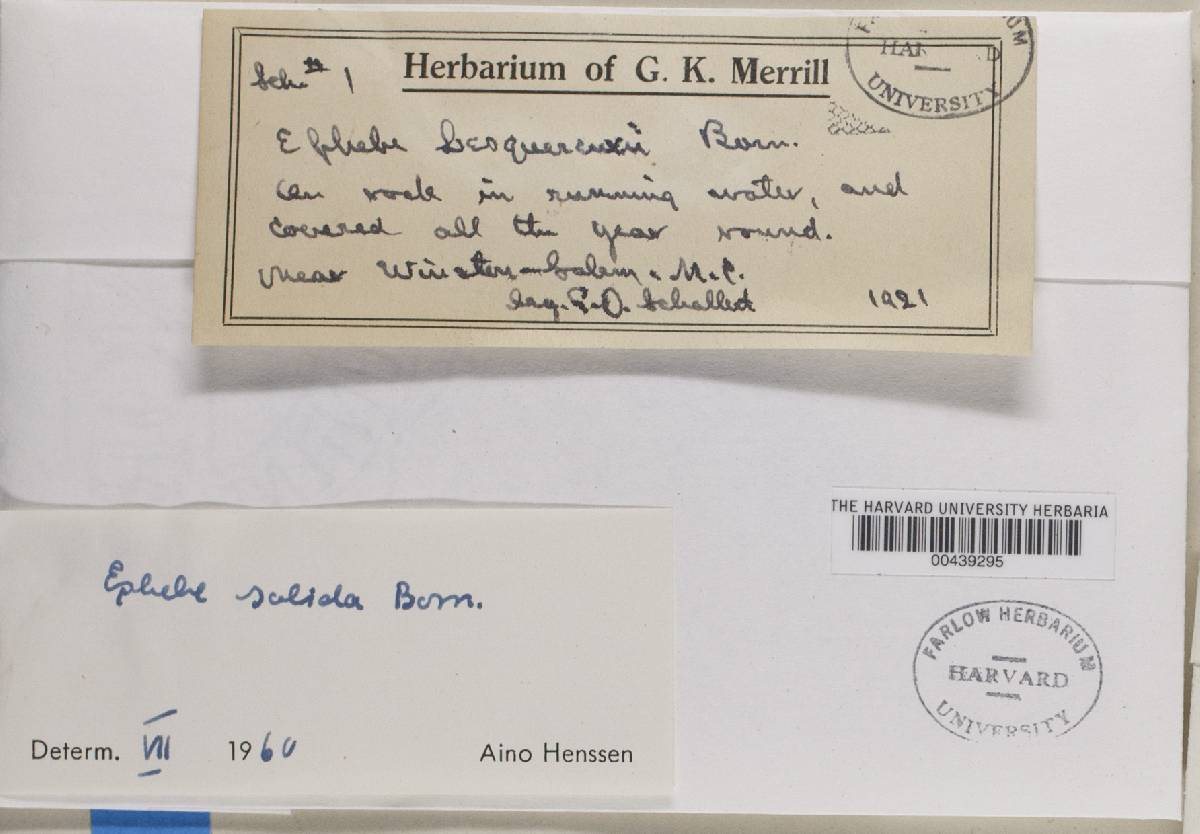 Sch # 1
Herbarium of G. K. Merrill
HARVARD
UNIVERSITY
Ephebe Lesquereuxii Born.
On rock in running water, and
covered all the year round.
Near Winston-Salem, N.C.
Leg. P.O. Schallert 1921
THE HARVARD UNIVERSITY HERBARIA
00439295
Ephebe solida Born.
FARLOW HERBARIUM
HARVARD
UNIVERSITY
Determ. VII 1960 Aino Henssen